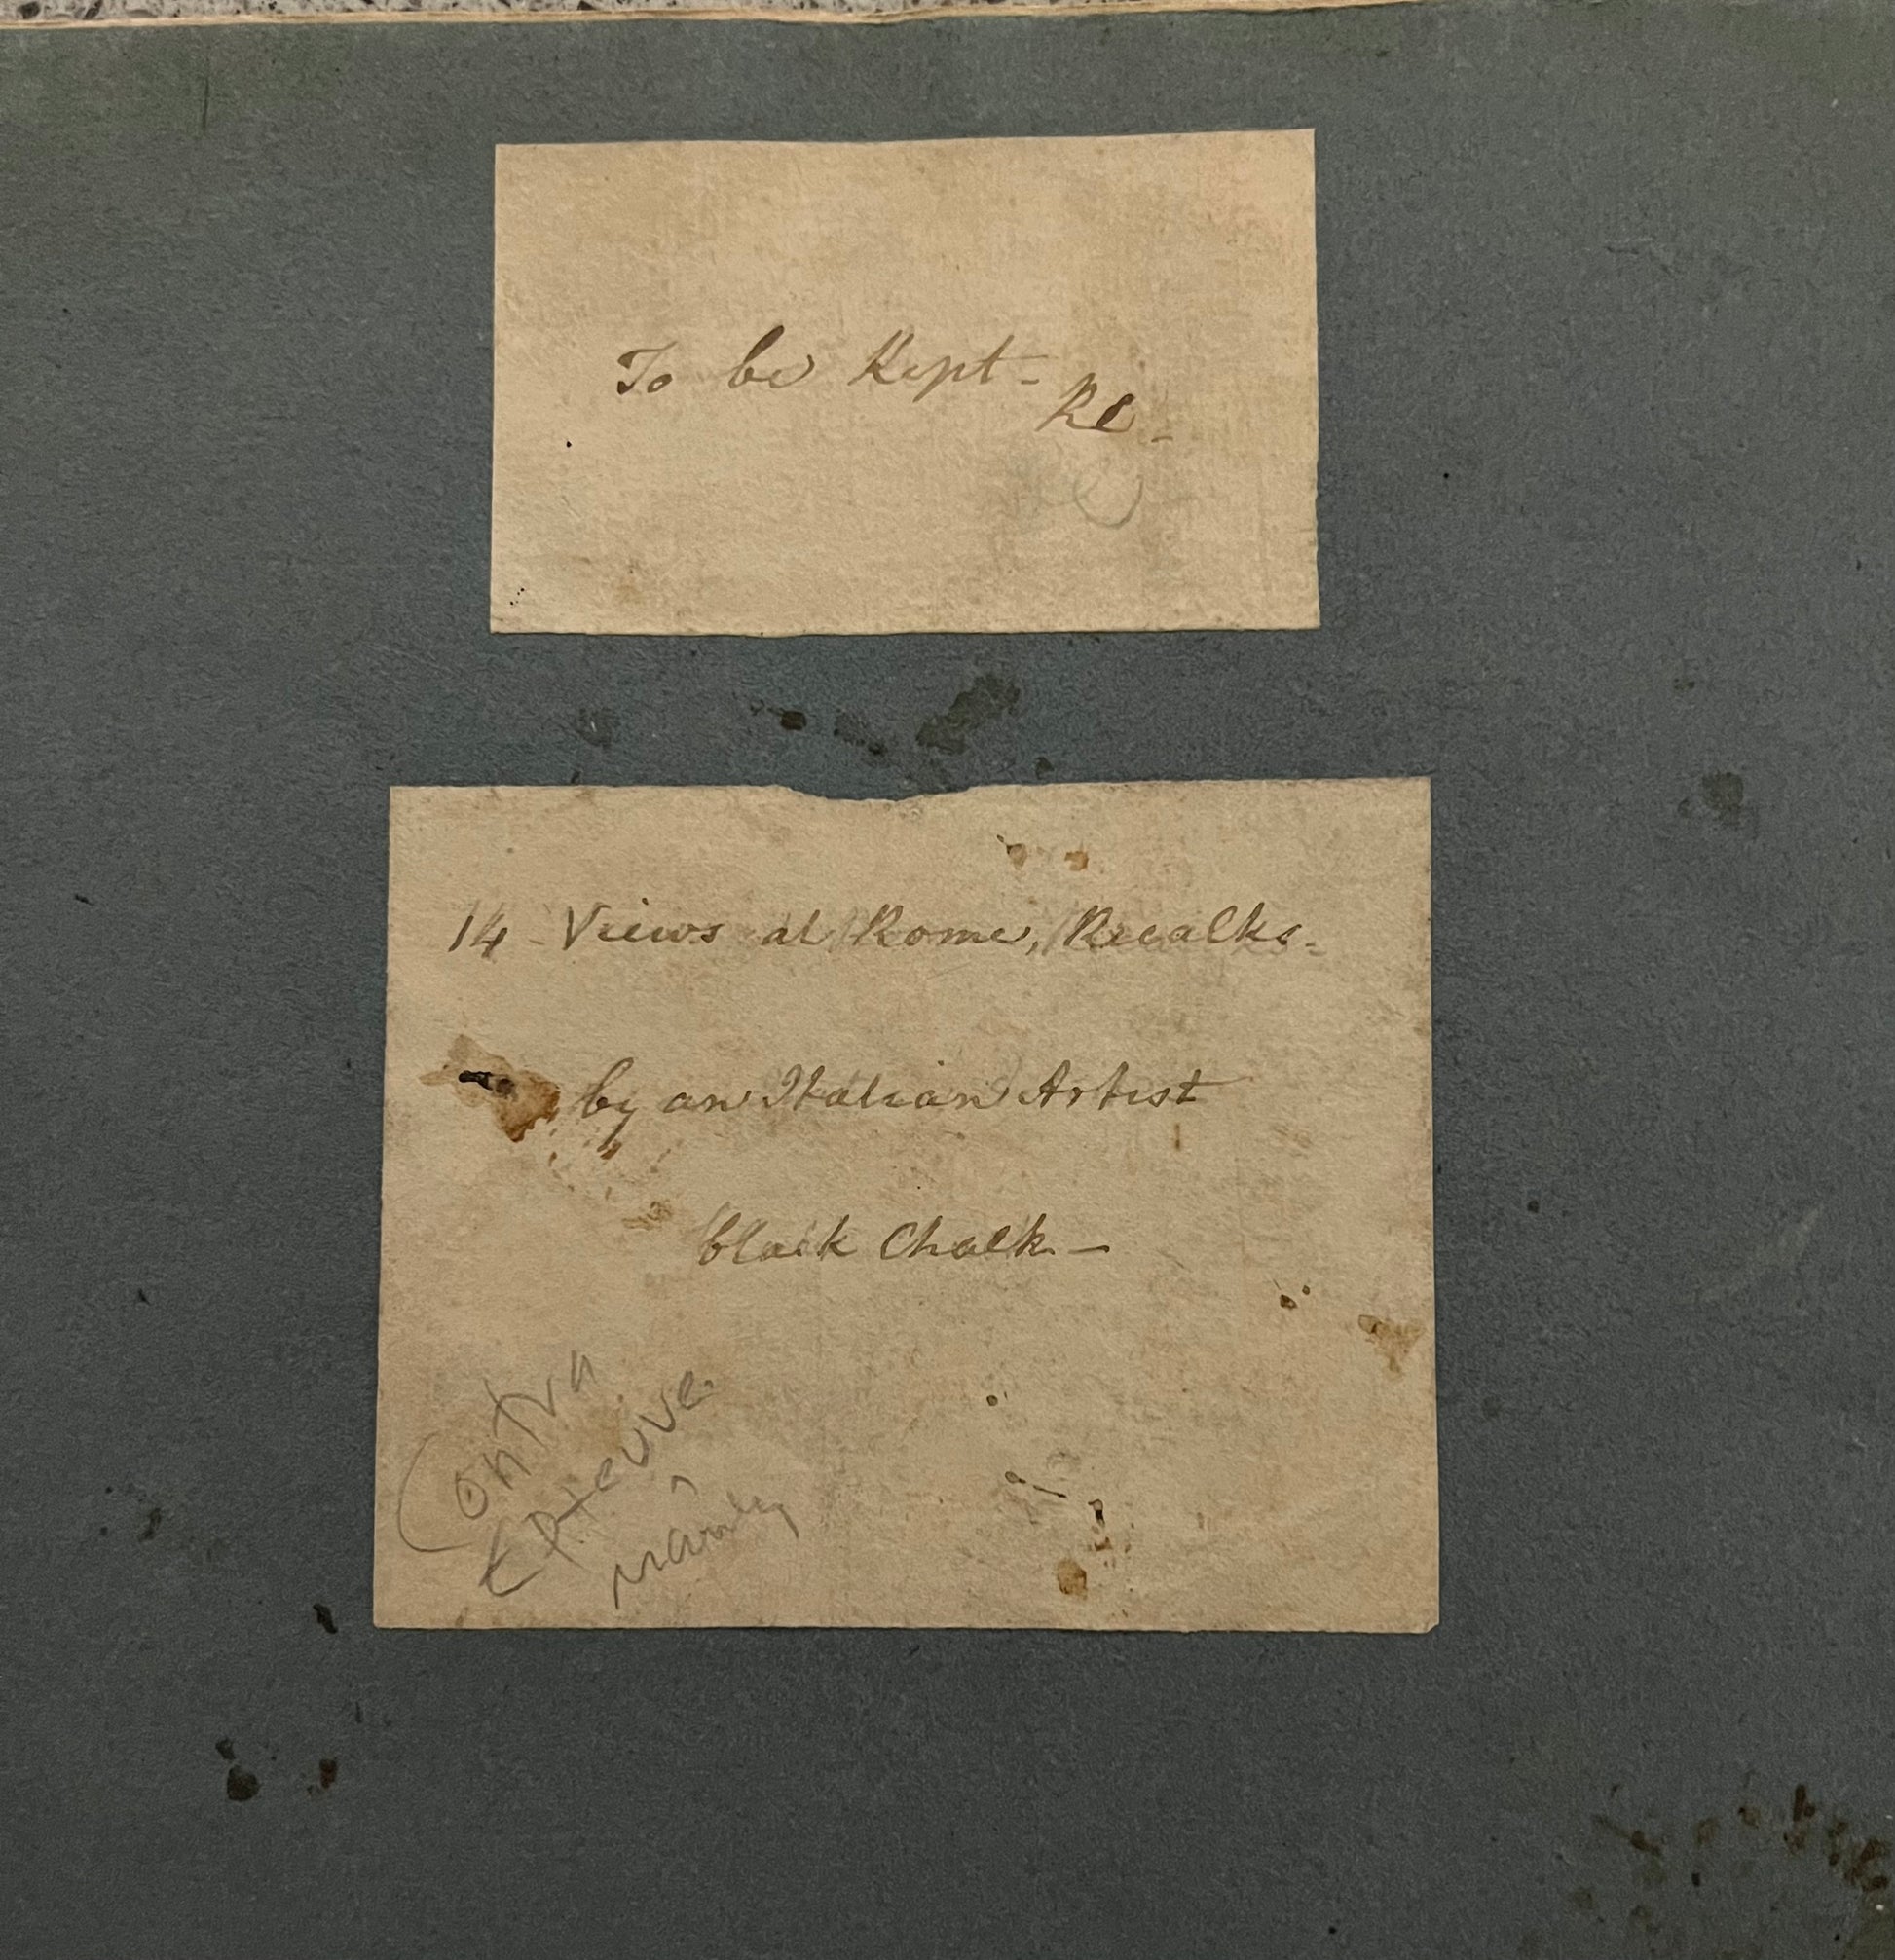 To be Kept - RC -
14 - Views at Rome, Recalks -
by an Italian Artist
black Chalk —
Contra
Epreuve
mainly